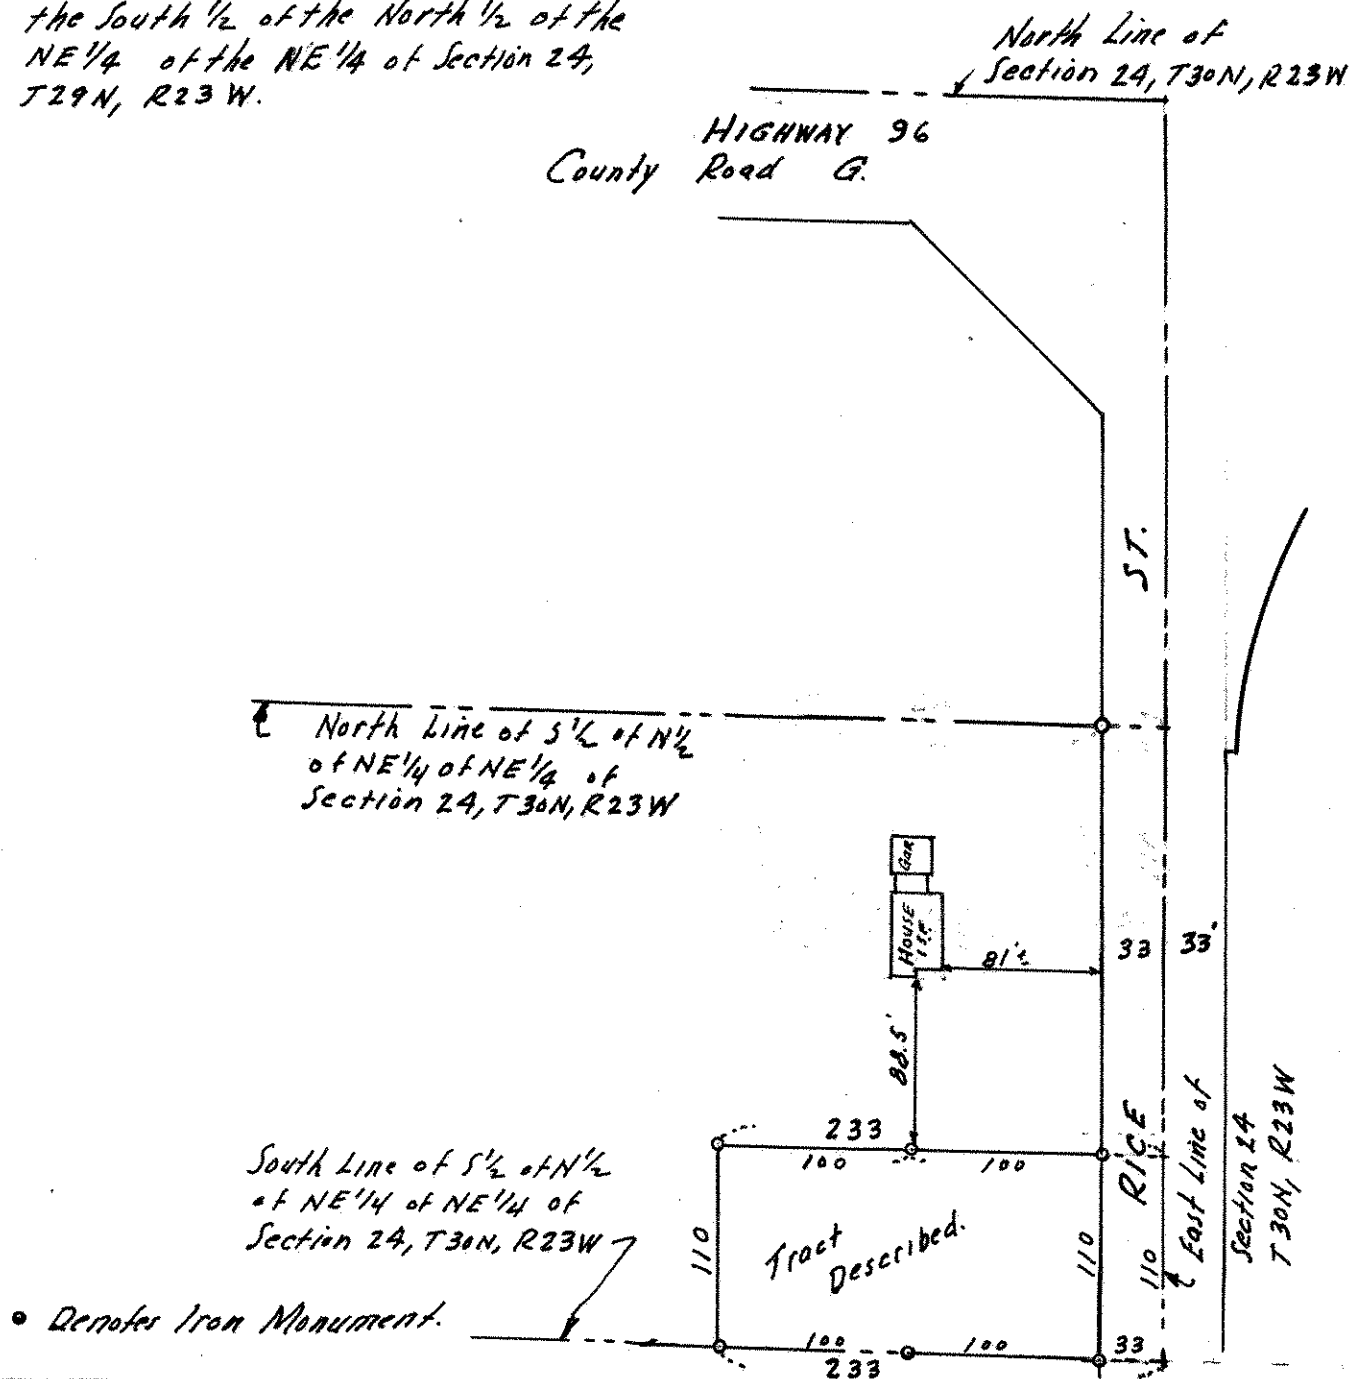 the South 1/2 of the North 1/2 of the
NE 1/4 of the NE 1/4 of Section 24,
T29N, R23W.
North Line of
Section 24, T30N, R23W
HIGHWAY 96
County Road G.
ST.
North Line of S 1/2 of N 1/2
of NE 1/4 of NE 1/4 of
Section 24, T30N, R23W
Gar
House
81'±
33
33'
88.5'
233
100
100
RICE
East Line of
Section 24
T30N, R23W
South Line of S 1/2 of N 1/2
of NE 1/4 of NE 1/4 of
Section 24, T30N, R23W
110
Tract
Described.
110
110
Denotes Iron Monument.
100
100
33
233